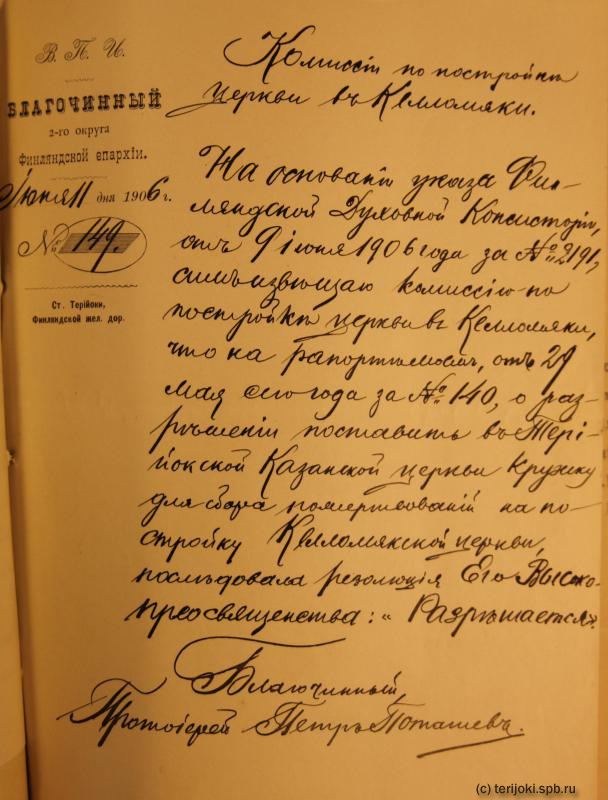 В. П. И.
БЛАГОЧИННЫЙ
2-го округа
Финляндской епархіи.
Іюня 11 дня 1906 г.
№ 149.
Ст. Терійоки,
Финляндской жел. дор.
Комиссіи по постройкѣ
церкви въ Келломяки.
На основаніи указа Фин-
ляндской Духовной Консисторіи,
отъ 9 іюня 1906 года за № 2191,
симъ извѣщаю комиссію по
постройкѣ церкви въ Келломяки,
что на рапортѣ моемъ, отъ 29
мая сего года за № 140, о раз-
рѣшеніи поставить въ Терій-
йокской Казанской церкви кружку
для сбора пожертвованій на по-
стройку Келломякской церкви,
послѣдовала резолюція Его Высоко-
преосвященства: „Разрѣшается“.
Благочинный,
Протоіерей Петръ Поташевъ.
(c) terijoki.spb.ru